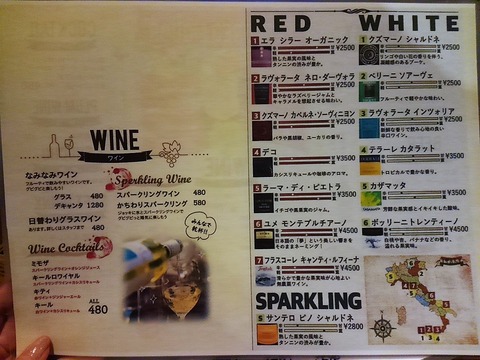 WINE
ワイン
なみなみワイン
フルーティで飲みやすいワインです。
グビグビと楽しもう!
グラス 480
デキャンタ 1280
日替わりグラスワイン
あります。詳しくはスタッフまで
480
Wine Cocktails
ミモザ
スパークリングワイン+オレンジジュース
キールロワイヤル
スパークリングワイン+カシスリキュール
キティ
赤ワイン+ジンジャーエール
キール
白ワイン+カシスリキュール
ALL
480
Sparkling Wine
スパークリングワイン 480
かちわりスパークリング 580
みんなで
乾杯!!
RED
1 エラ シラー オーガニック
¥2500
熟した果実の風味と
タンニンの渋みが豊か。
2 ラヴォラータ ネロ・ダーヴォラ
¥2500
華やかなラズベリージャムと
キャラメルを想起させる味わい。
3 クズマーノ カベルネ・ソーヴィニヨン
¥3500
バラや黒胡椒、ユーカリの香り。
4 デコ
¥3500
カシスリキュールや珈琲のアロマ。
5 ラーマ・ディ・ピエトラ
¥3500
イチゴや黒果実のジャム。
6 ユメ モンテプルチアーノ
¥4500
日本語の「夢」という美しい響きを
そのままネーミング!
7 フラスコーレ キャンティ・ルフィーナ
¥4500
滑らかで豊かな果実味が心地よい
無農薬ワイン。
SPARKLING
S サンテロ ピノ シャルドネ
¥2800
熟した果実の風味と
タンニンの渋みが豊か。
WHITE
1 クズマーノ シャルドネ
¥2500
リンゴや白い花の香りを伴う、
繊細感のあるブーケ。
2 ベリーニ ソアーヴェ
¥2500
フルーティで軽やかな味わい。
3 ラヴォラータ インツォリア
¥2500
新鮮な香りで飲み心地の良い
辛口ワイン。
4 テラーレ カタラット
¥3500
トロピカルで豊かな香り。
5 カザマッタ
¥3500
芳醇な果実感とイキイキした酸味。
6 ポッリーニ トレンティーノ
¥4500
白桃や杏、バナナなどの香り。
溢れる果実味。